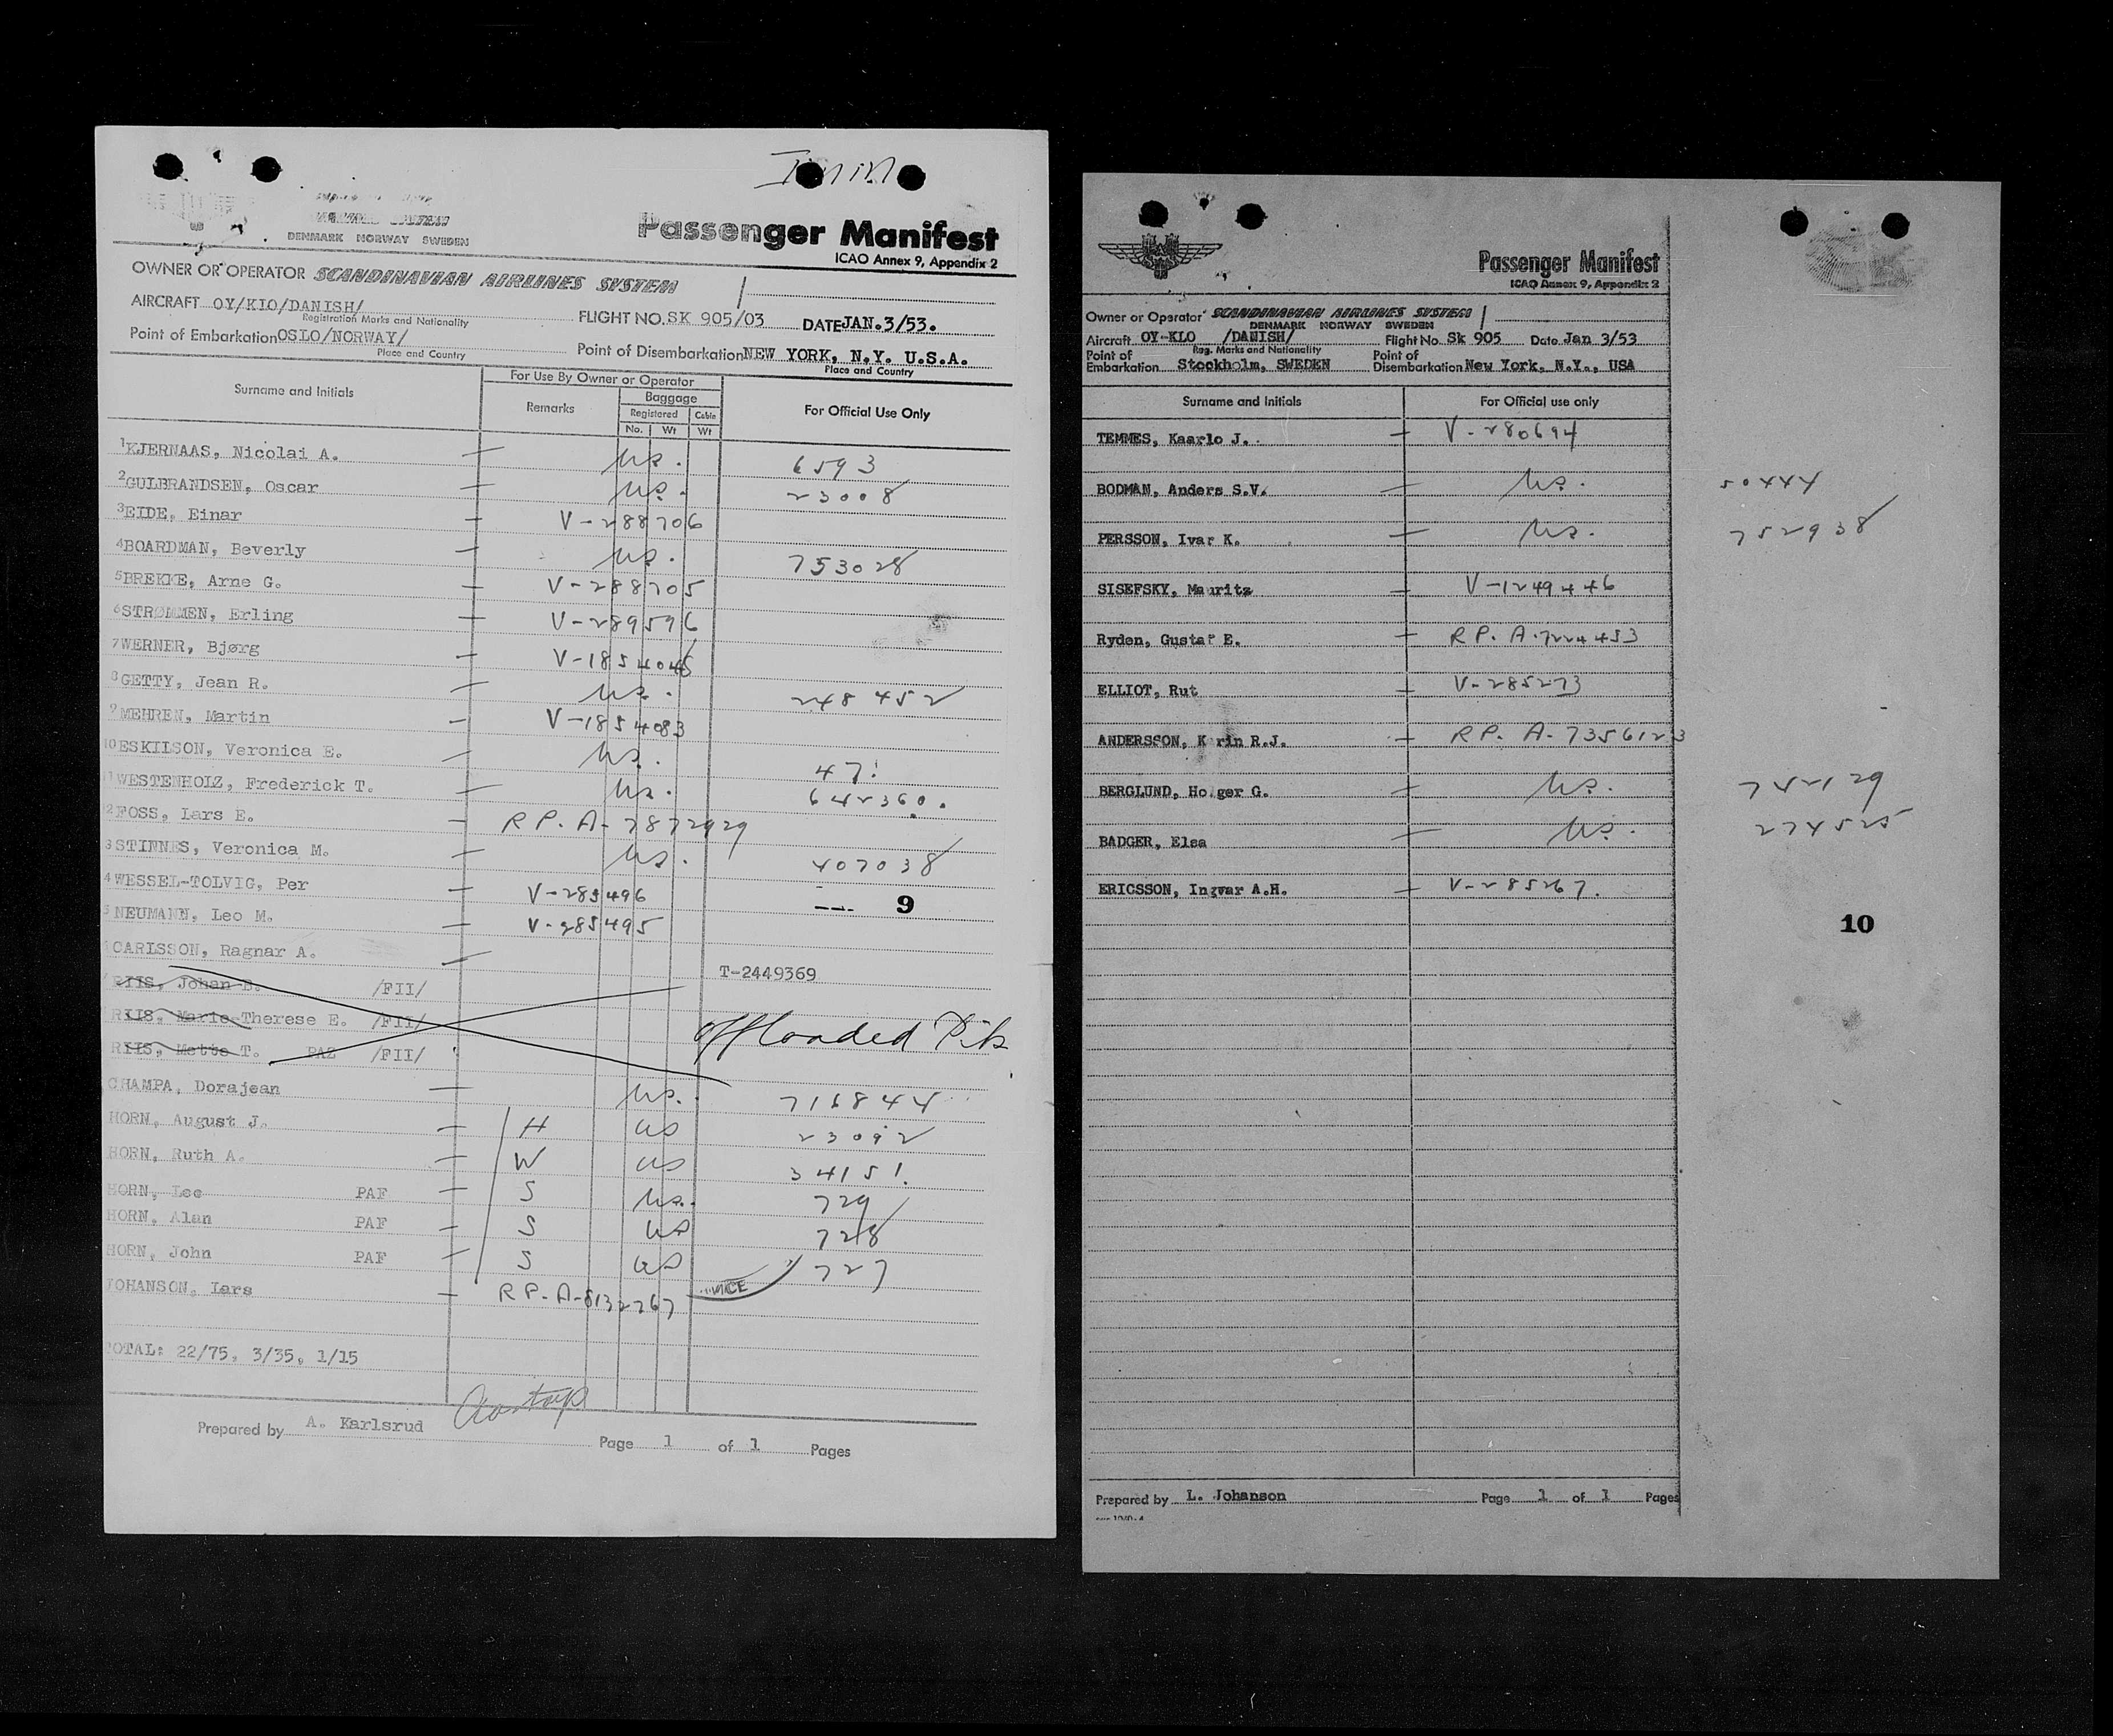 Immn
DENMARK NORWAY SWEDEN
Passenger Manifest
ICAO Annex 9, Appendix 2
OWNER OR OPERATOR SCANDINAVIAN AIRLINES SYSTEM
AIRCRAFT OY/KLO/DANISH/ FLIGHT NO. SK 905/03 DATE JAN.3/53.
Registration Marks and Nationality
Point of Embarkation OSLO/NORWAY/ Point of Disembarkation NEW YORK, N.Y. U.S.A.
Place and Country Place and Country
Surname and Initials For Use By Owner or Operator For Official Use Only
Remarks Baggage
Registered Cabin
No. Wt Wt
1 KJERNAAS, Nicolai A. — us. 6593
2 GULBRANDSEN, Oscar — us. 23008
3 EIDE, Einar — V-288706
4 BOARDMAN, Beverly — us. 753028
5 BREKKE, Arne G. — V-288705
6 STRØMMEN, Erling — V-289596
7 WERNER, Bjørg — V-1854045
8 GETTY, Jean R. — us. 248452
9 MEHREN, Martin — V-1854083
10 ESKILSON, Veronica E. — us. 47!
11 WESTENHOLZ, Frederick T. — us. 642360.
2 FOSS, Lars E. — R P. A- 7872929
3 STINNES, Veronica M. — us. 407038
4 WESSEL-TOLVIG, Per — V-285496
9
5 NEUMANN, Leo M. — V-285495
CARLSSON, Ragnar A. — T-2449369
RIIS, Johan B. /FII/
RIIS, Marie-Therese E. /FII/ offloaded Pik
RIIS, Mette T. PAZ /FII/
CHAMPA, Dorajean — us. 716844
HORN, August J. — H us 23092
HORN, Ruth A. — W us 34151.
HORN, Lee PAF — S us. 729
HORN, Alan PAF — S us 728
HORN, John PAF — S us 727
JOHANSON, Lars — R P. A-8132767
TOTAL: 22/75, 3/35, 1/15
Prepared by A. Karlsrud
Page 1 of 1 Pages
Passenger Manifest
ICAO Annex 9, Appendix 2
Owner or Operator SCANDINAVIAN AIRLINES SYSTEM
DENMARK NORWAY SWEDEN
Aircraft OY-KLO /DANISH/ Flight No. Sk 905 Date Jan 3/53
Reg. Marks and Nationality
Point of Embarkation Stockholm, SWEDEN Point of Disembarkation New York, N.Y., USA
Surname and Initials For Official use only
TEMMES, Kaarlo J. — V-280694
BODMAN, Anders S.V. — us. 50444
PERSSON, Ivar K. — us. 752938
SISEFSKY, Mauritz — V-1249446
Ryden, Gustaf E. — R P. A-7224453
ELLIOT, Rut — V-285273
ANDERSSON, Karin R.J. — R P. A-7356123
BERGLUND, Holger G. — us. 752129
BADGER, Elsa — us. 274525
ERICSSON, Ingvar A.H. — V-285267.
10
Prepared by L. Johanson Page 1 of 1 Pages